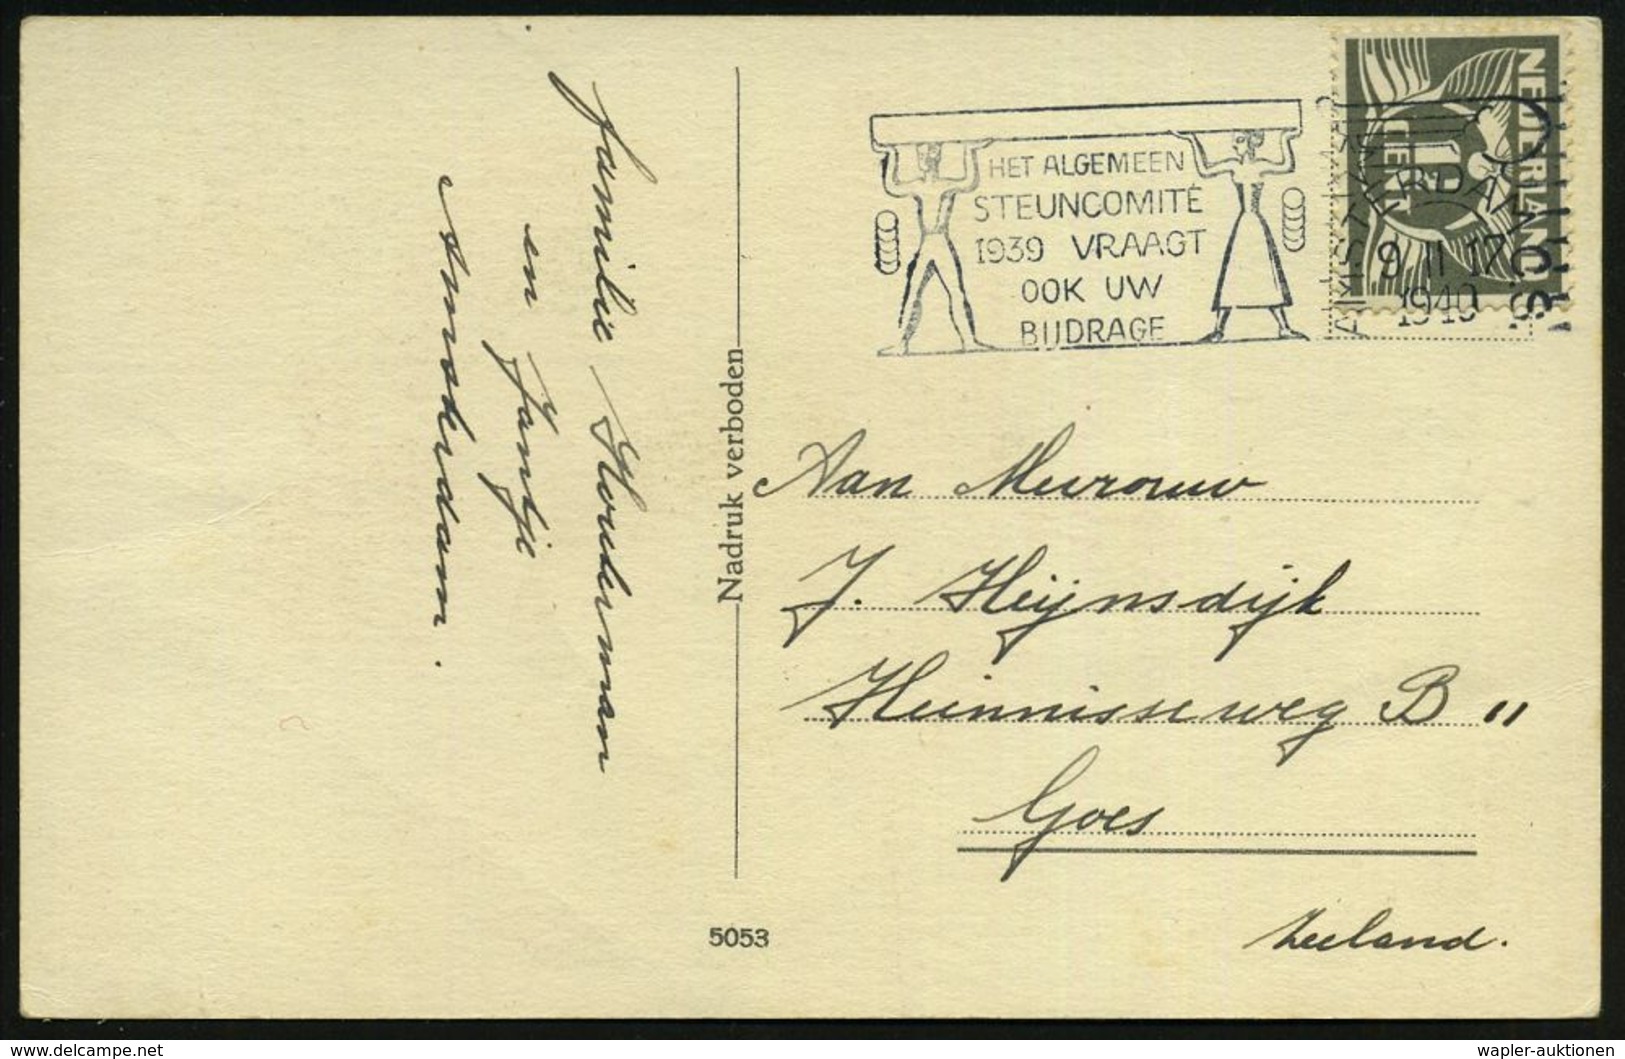 familie Houterman
en Jantje
Amsterdam.
Nadruk verboden
5053
HET ALGEMEEN
STEUNCOMITÉ
1939 VRAAGT
OOK UW
BIJDRAGE
NEDERLAND
1 CENT
AMSTERDAM
9 II 17
1940
Aan Mevrouw
J. Heijnsdijk
Heinnisseweg B 11
Goes
Zeeland.
www.delcampe.net
wapler-auktionen